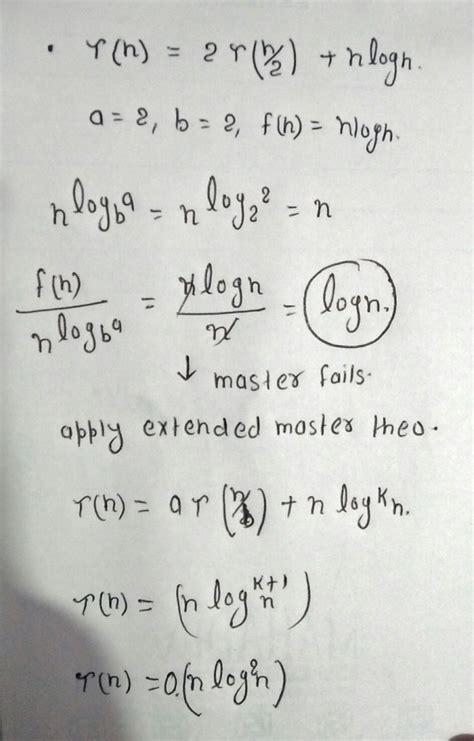 • T(n) = 2T(n/2) + nlogn.
a = 2, b = 2, f(n) = nlogn.
n^log_b^a = n^log_2^2 = n
f(n) / n^log_b^a = nlogn / n = logn.
↓ master fails.
apply extended master theo.
T(n) = aT(n/b) + n log^k n.
T(n) = (n log^k+1 n)
T(n) = O.(n log^2 n)